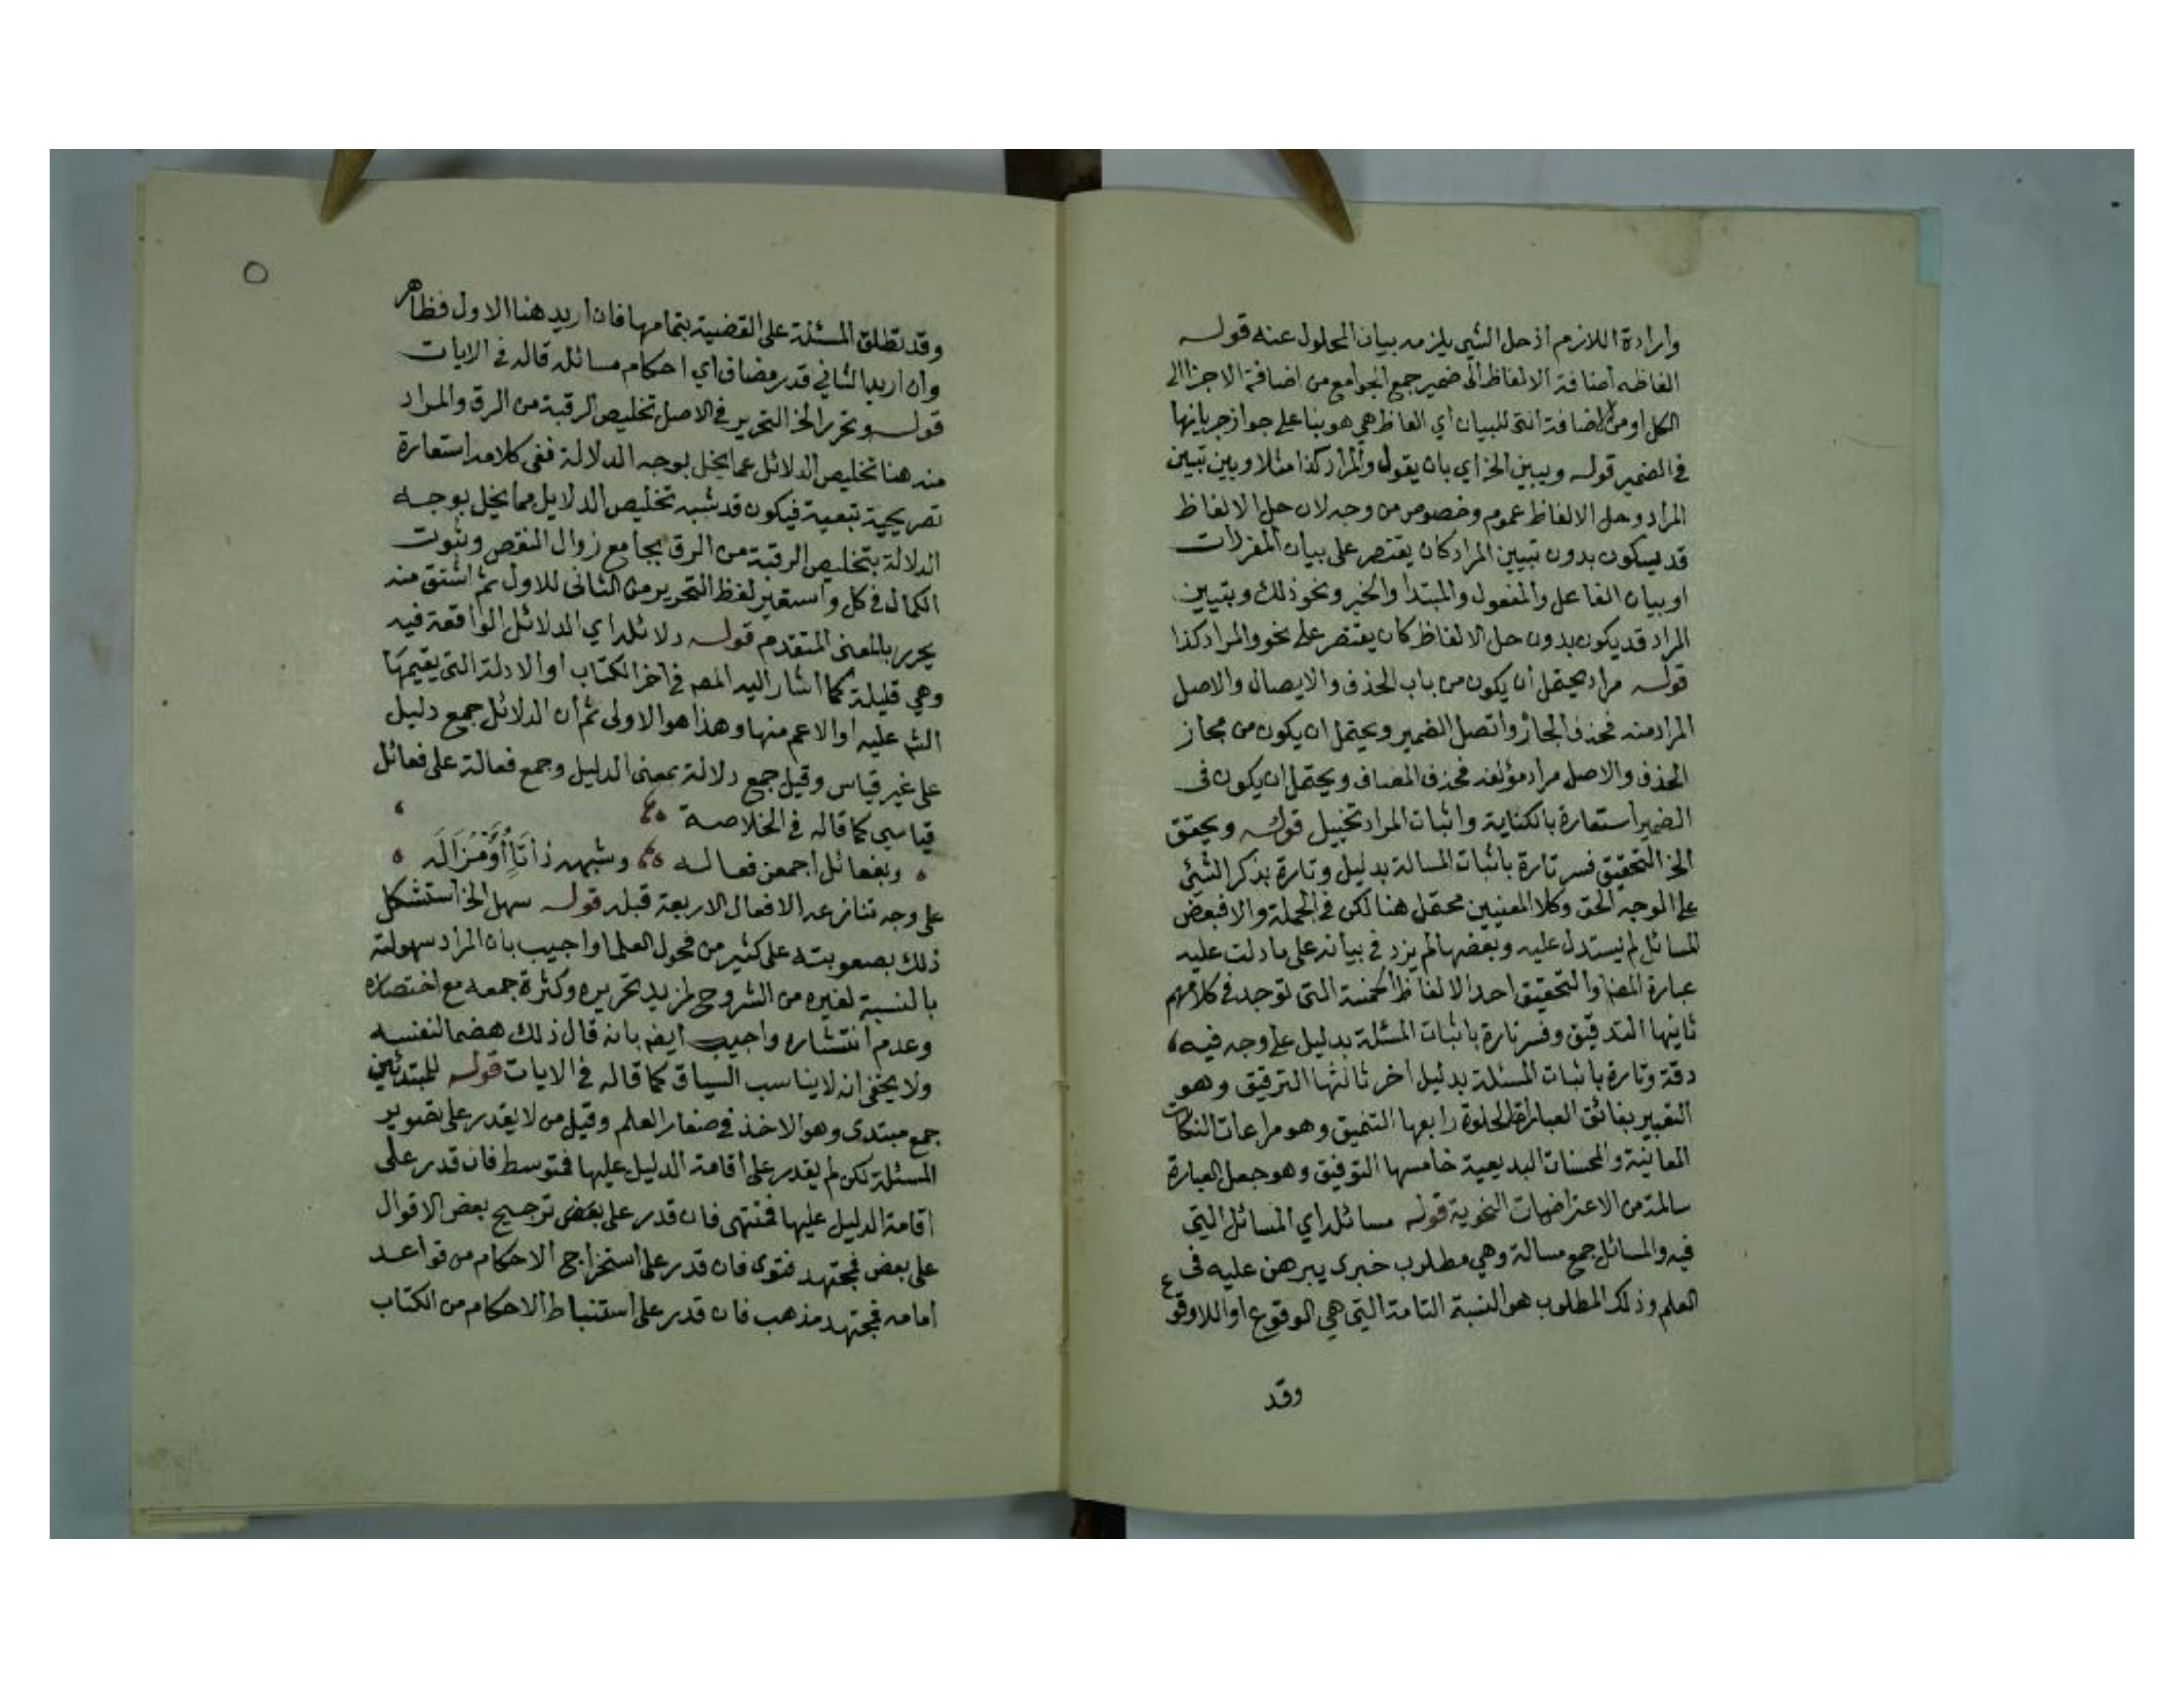 وارادة اللازم اذ حل الشي يلزمه بيان المحلول عنه قوله
الفاظه اضافة الالفاظ الى ضمير جمع الجوامع من اضافة الاجزا الى
الكل او من اضافة التى للبيان اي الفاظ هي هو بنا على جواز جريانها
في الضمير قوله ويبين الخ اي بان يقول والمراد كذا مثلا وبين تبيين
المراد وحل الالفاظ عموم وخصوص من وجه لان حل الالفاظ
قد يسكون بدون تبيين المراد كان يقتصر على بيان المفردات
او بيان الفاعل والمفعول والمبتدا والخبر ونحو ذلك وبتيين
المراد قد يكون بدون حل الالفاظ كان يقتصر على نحو والمراد كذا
قوله مراده يحتمل ان يكون من باب الحذف والايصال والاصل
المراد منه فحذف الجار واتصل الضمير ويحتمل ان يكون من مجاز
الحذف والاصل مراد مؤلفه فحذف المضاف ويحتمل ان يكون فى
الضمير استعارة بالكناية واثبات المراد تخييل قوله ويحقق
الخ التحقيق فسر تارة باثبات المسالة بدليل وتارة بذكر الشئ
على الوجه الحق وكلا المعنيين محتمل هنا لكن في الجملة والا فبعض
المسائل لم يستدل عليه وبعضها لم يزد في بيانه على ما دلت عليه
عبارة المص والتحقيق احد الالفاظ الخمسة التى توجد فى كلامهم
ثاينها التدقيق وفسر تارة باثبات المسئلة بدليل على وجه فيه
دقة وتارة باثبات المسئلة بدليل اخر ثالثها الترقيق وهو
التعبير بفائق العبارة الحلوة رابعها التنميق وهو مراعات النكات
المعانية والمحسنات البديعية خامسها التوفيق وهو جعل العبارة
سالمة من الاعتراضات النحوية قوله مسائله اي المسائل التى
فيه والمسائل جمع مسالة وهي مطلوب خبرى يبرهن عليه فى
العلم وذلك المطلوب هو النسبة التامة التى هي الوقوع او اللاوقوع
وقد
٥
وقد تطلق المسئلة على القضية بتمامها فان اريد هنا الاول فظاهر
وان اريد الثاني قدر مضاف اي احكام مسائله قاله فى الايات
قوله ويحرر الخ التحرير في الاصل تخليص الرقبة من الرق والمراد
منه هنا تخليص الدلائل عما يخل بوجه الدلالة ففى كلامه استعارة
تصريحية تبعية فيكون قد شبه تخليص الدلايل مما يخل بوجه
الدلالة بتخليص الرقبة من الرق بجامع زوال النقص وثبوت
الكمال فى كل واستعير لفظ التحرير من الثانى للاول ثم اشتق منه
يحرر بالمعنى المتقدم قوله دلائله اي الدلائل الواقعة فيه
وهي قليلة كما اشار اليه المص في اخر الكتاب او الادلة التى يقيمها
الش عليه او الاعم منها وهذا هو الاولى ثم ان الدلائل جمع دليل
على غير قياس وقيل جمع دلالة بمعنى الدليل وجمع فعالة على فعائل
قياسي كما قاله فى الخلاصة
وبفعائل اجمعن فعاله وشبهه ذا تاء او مزاله
على وجه تنازعه الافعال الاربعة قبله قوله سهل الخ استشكل
ذلك بصعوبته على كثير من فحول العلما واجيب بان المراد سهولته
بالنسبة لغيره من الشروح لمزيد تحريره وكثرة جمعه مع اختصاره
وعدم انتشاره واجيب ايض بانه قال ذلك هضما لنفسه
ولا يخفى انه لا يناسب السياق كما قاله فى الايات قوله للمبتدئين
جمع مبتدى وهو الاخذ فى صغار العلم وقيل من لا يقدر على تصوير
المسئلة لكن لم يقدر على اقامة الدليل عليها فمتوسط فان قدر على
اقامة الدليل عليها فمنتهى فان قدر على بعض ترجيح بعض الاقوال
على بعض فمجتهد فتوى فان قدر على استخراج الاحكام من قواعد
امامه فمجتهد مذهب فان قدر على استنباط الاحكام من الكتاب